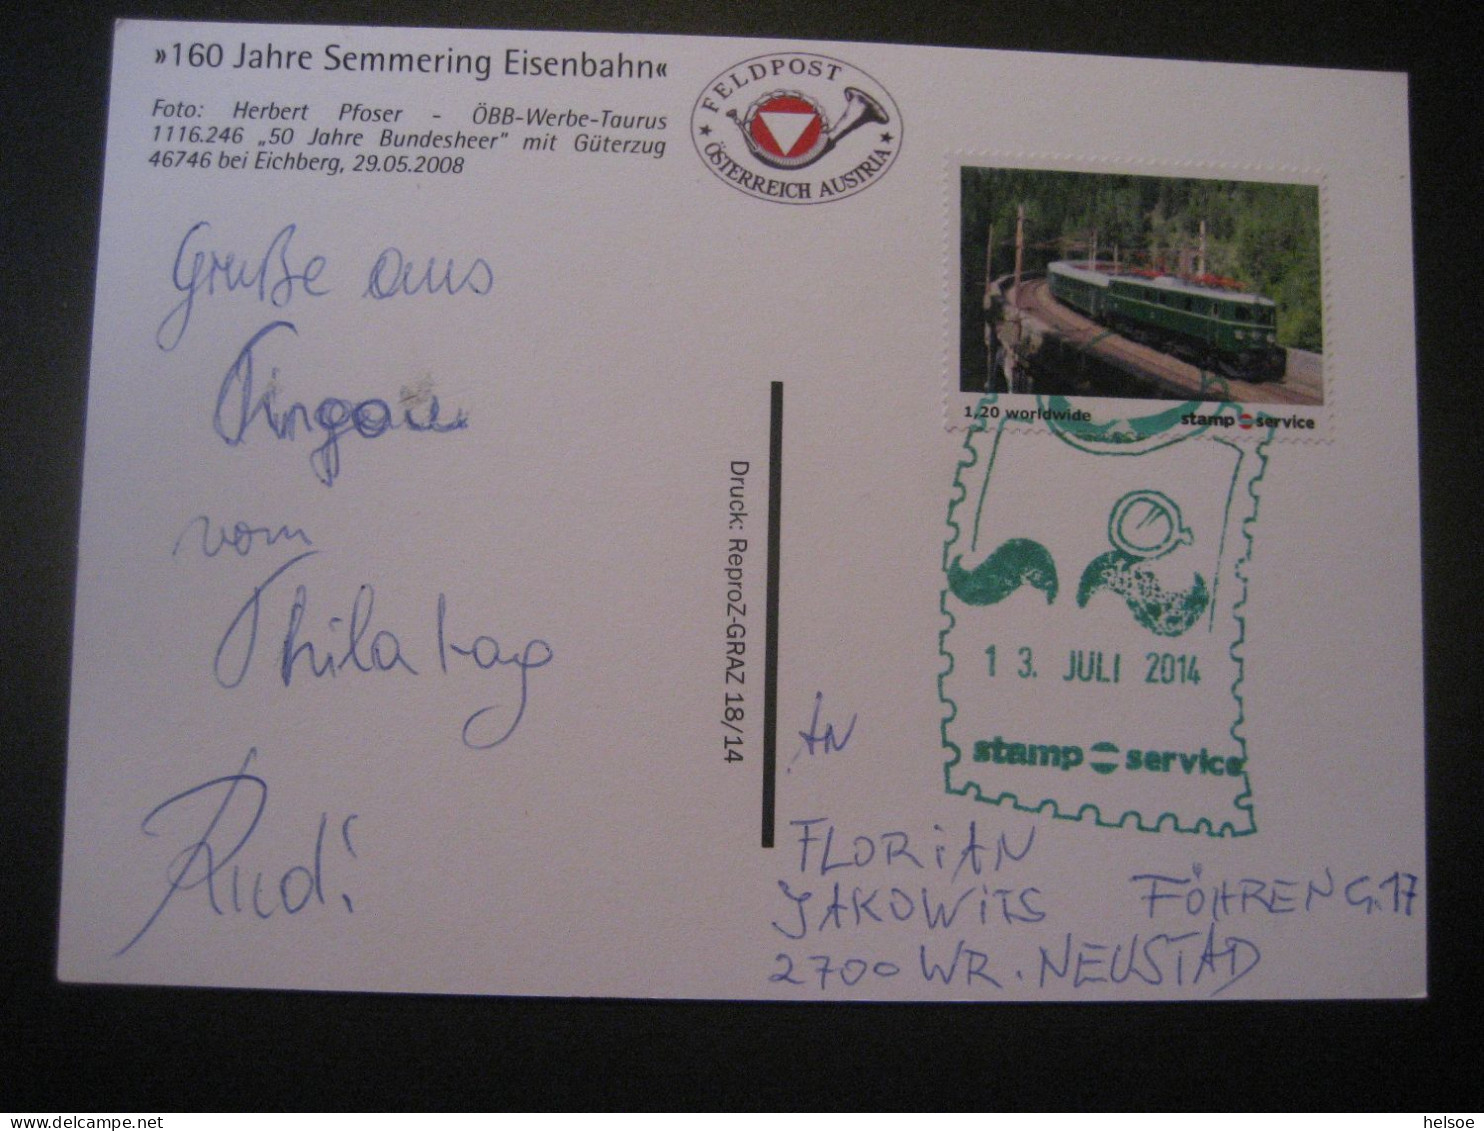 »160 Jahre Semmering Eisenbahn«
Foto: Herbert Pfoser - ÖBB-Werbe-Taurus
1116.246 „50 Jahre Bundesheer" mit Güterzug
46746 bei Eichberg, 29.05.2008
FELDPOST
ÖSTERREICH AUSTRIA
1,20 worldwide
stamp service
Grüße aus
vom
Philatag
Rudi
Druck: ReproZ-GRAZ 18/14
13. JULI 2014
stamp service
AN
FLORIAN
JAKOWITS FÖHRENG. 17
2700 WR. NEUSTAD
delcampe.net
helsoe